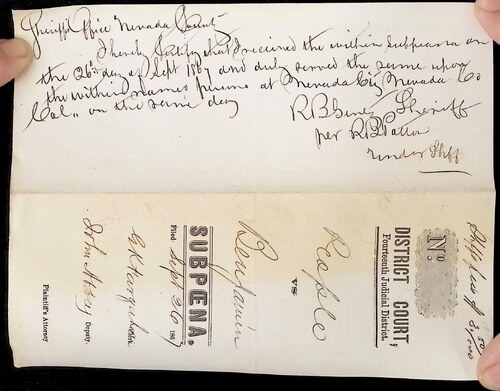 Sheriff's Office Nevada County
I hereby Certify that I received the within Subpoena on
the 26th day of Sept 1867 and duly served the same upon
the within names persons at Nevada City Nevada Co
Cal,, on the same day
Sheriff
per
under Shff
No
DISTRICT COURT,
Fourteenth Judicial District.
People
vs
Benjamin
SUBPENA.
Filed Sept 26 1867
Clerk
John
Deputy.
Plaintiff's Attorney